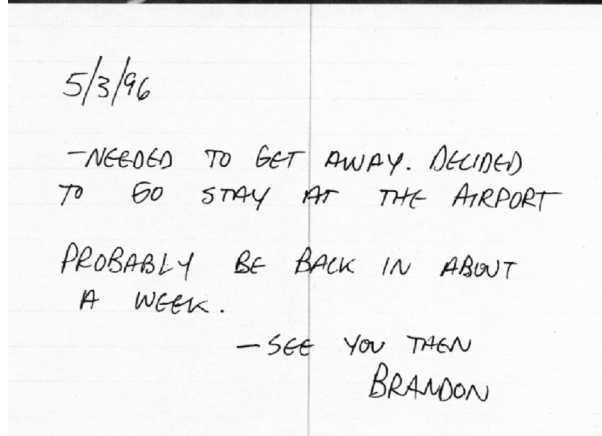 5/3/96
-NEEDED TO GET AWAY. DECIDED
TO GO STAY AT THE AIRPORT
PROBABLY BE BACK IN ABOUT
A WEEK.
-SEE YOU THEN
BRANDON